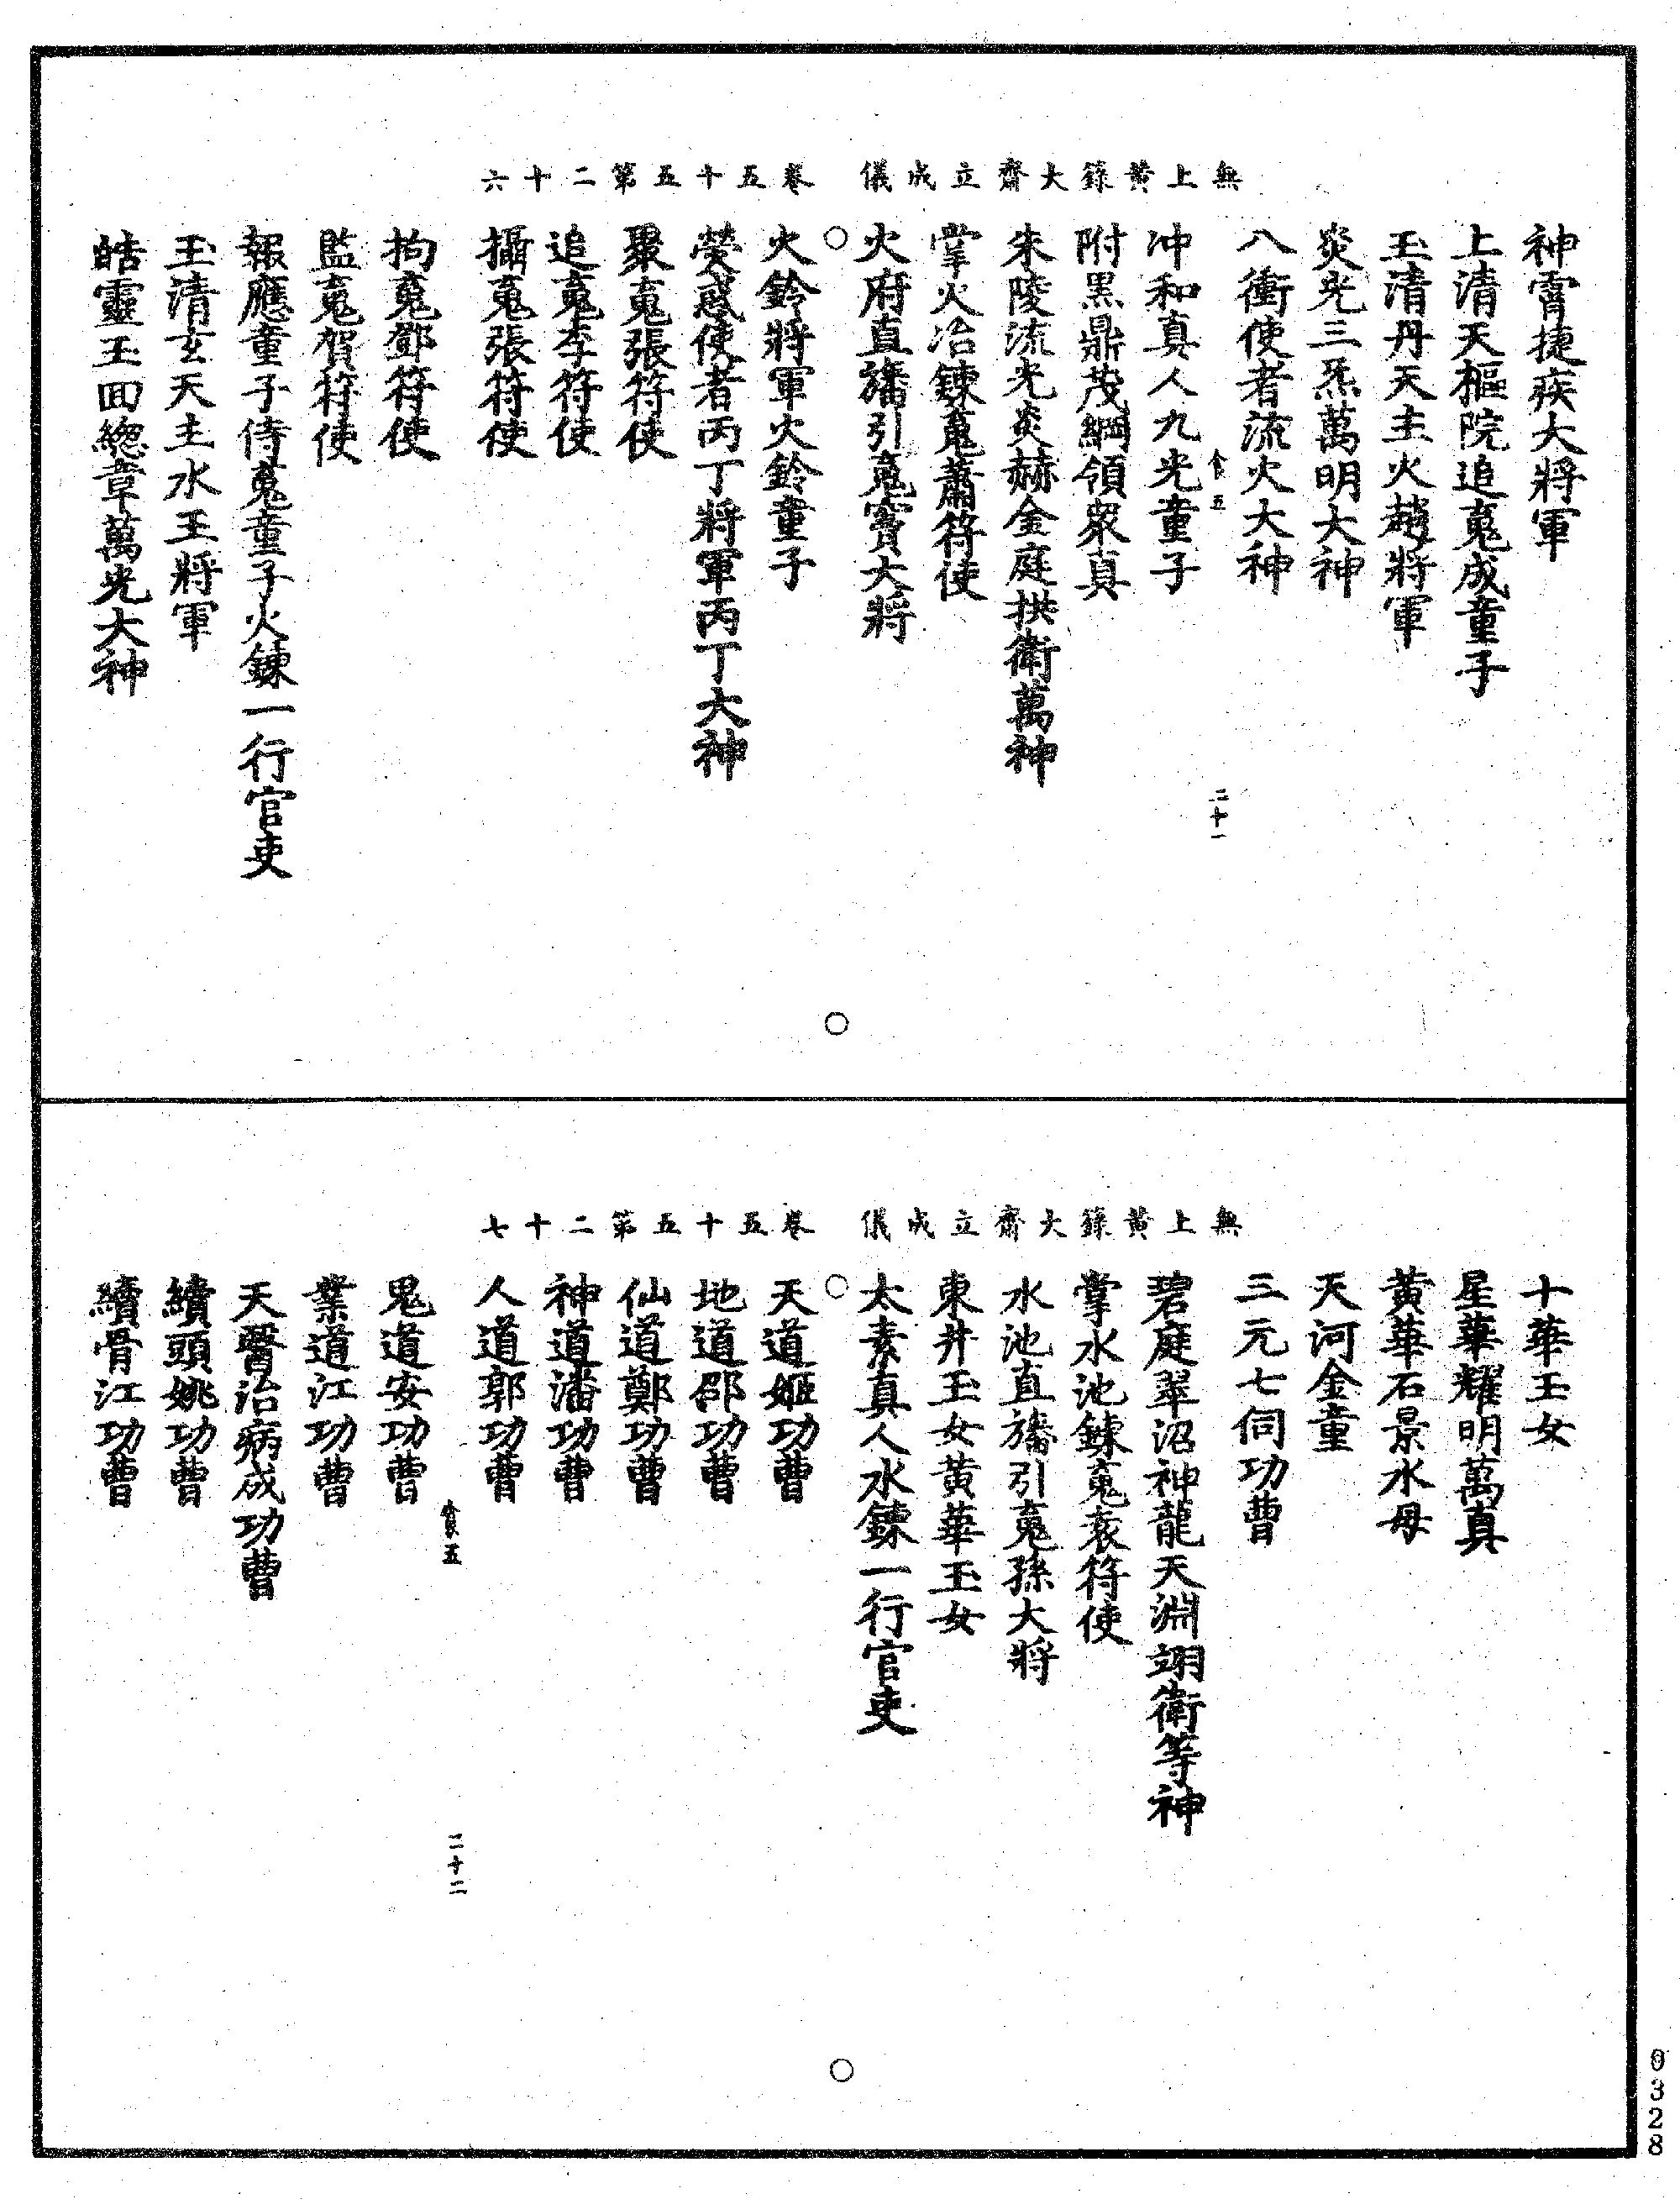 無上黃籙大齋立成儀 卷五十五第二十六
神霄捷疾大將軍
上清天樞院追䰟成童子
玉清丹天主火趙將軍
炎光三炁萬明大神
八衝使者流火大神
食五 二十一
冲和真人九光童子
附黑鼎茂綱領衆真
朱陵流光炎赫金庭拱衛萬神
掌火冶鍊䰟蕭符使
火府直旛引䰟竇大將
火鈴將軍火鈴童子
熒惑使者丙丁將軍丙丁大神
聚䰟張符使
追䰟李符使
攝䰟張符使
拘䰟鄧符使
監䰟賀符使
報應童子侍䰟童子火鍊一行官吏
玉清玄天主水王將軍
皓靈玉回緫章萬光大神
無上黃籙大齋立成儀 卷五十五第二十七
十華玉女
星華耀明萬真
黃華石景水母
天河金童
三元七伺功曹
碧庭翠沼神龍天淵翊衛等神
掌水池鍊䰟袁符使
水池直旛引䰟孫大將
東井玉女黃華玉女
太素真人水鍊一行官吏
天道姬功曹
地道邵功曹
仙道鄭功曹
神道潘功曹
人道郭功曹
食五 二十二
鬼道安功曹
業道江功曹
天醫治病成功曹
續頭姚功曹
續骨江功曹
0328